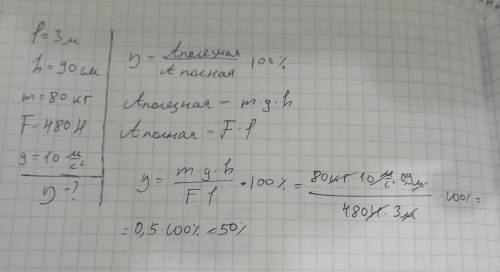 l = 3 м
h = 90 см
m = 80 кг
F = 480 Н
g = 10 м/с²
η - ?
η = Аполезная / Аполная · 100%
Аполезная = m · g · h
Аполная = F · l
η = m · g · h / F · l · 100% = 80 кг · 10 м/с² · 0,9 м / 480 Н · 3 м · 100% =
= 0,5 · 100% = 50%